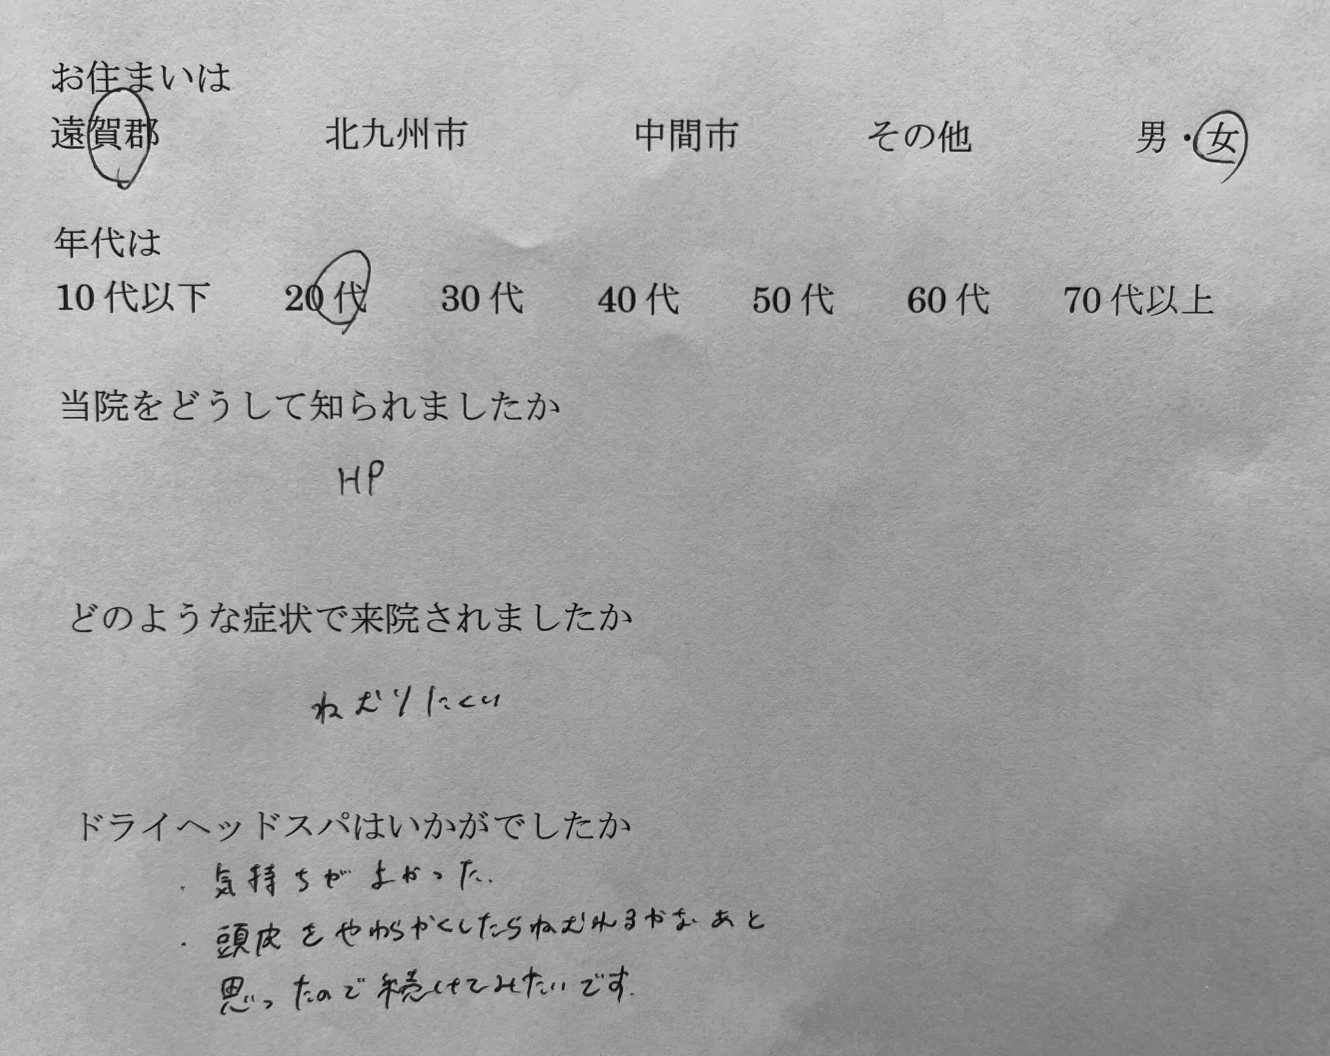 お住まいは
遠賀郡 北九州市 中間市 その他 男・女
年代は
10代以下 20代 30代 40代 50代 60代 70代以上
当院をどうして知られましたか
HP
どのような症状で来院されましたか
ねむりにくい
ドライヘッドスパはいかがでしたか
・気持ちがよかった。
・頭皮をやわらかくしたらねむれるかなあと
思ったので続けてみたいです。